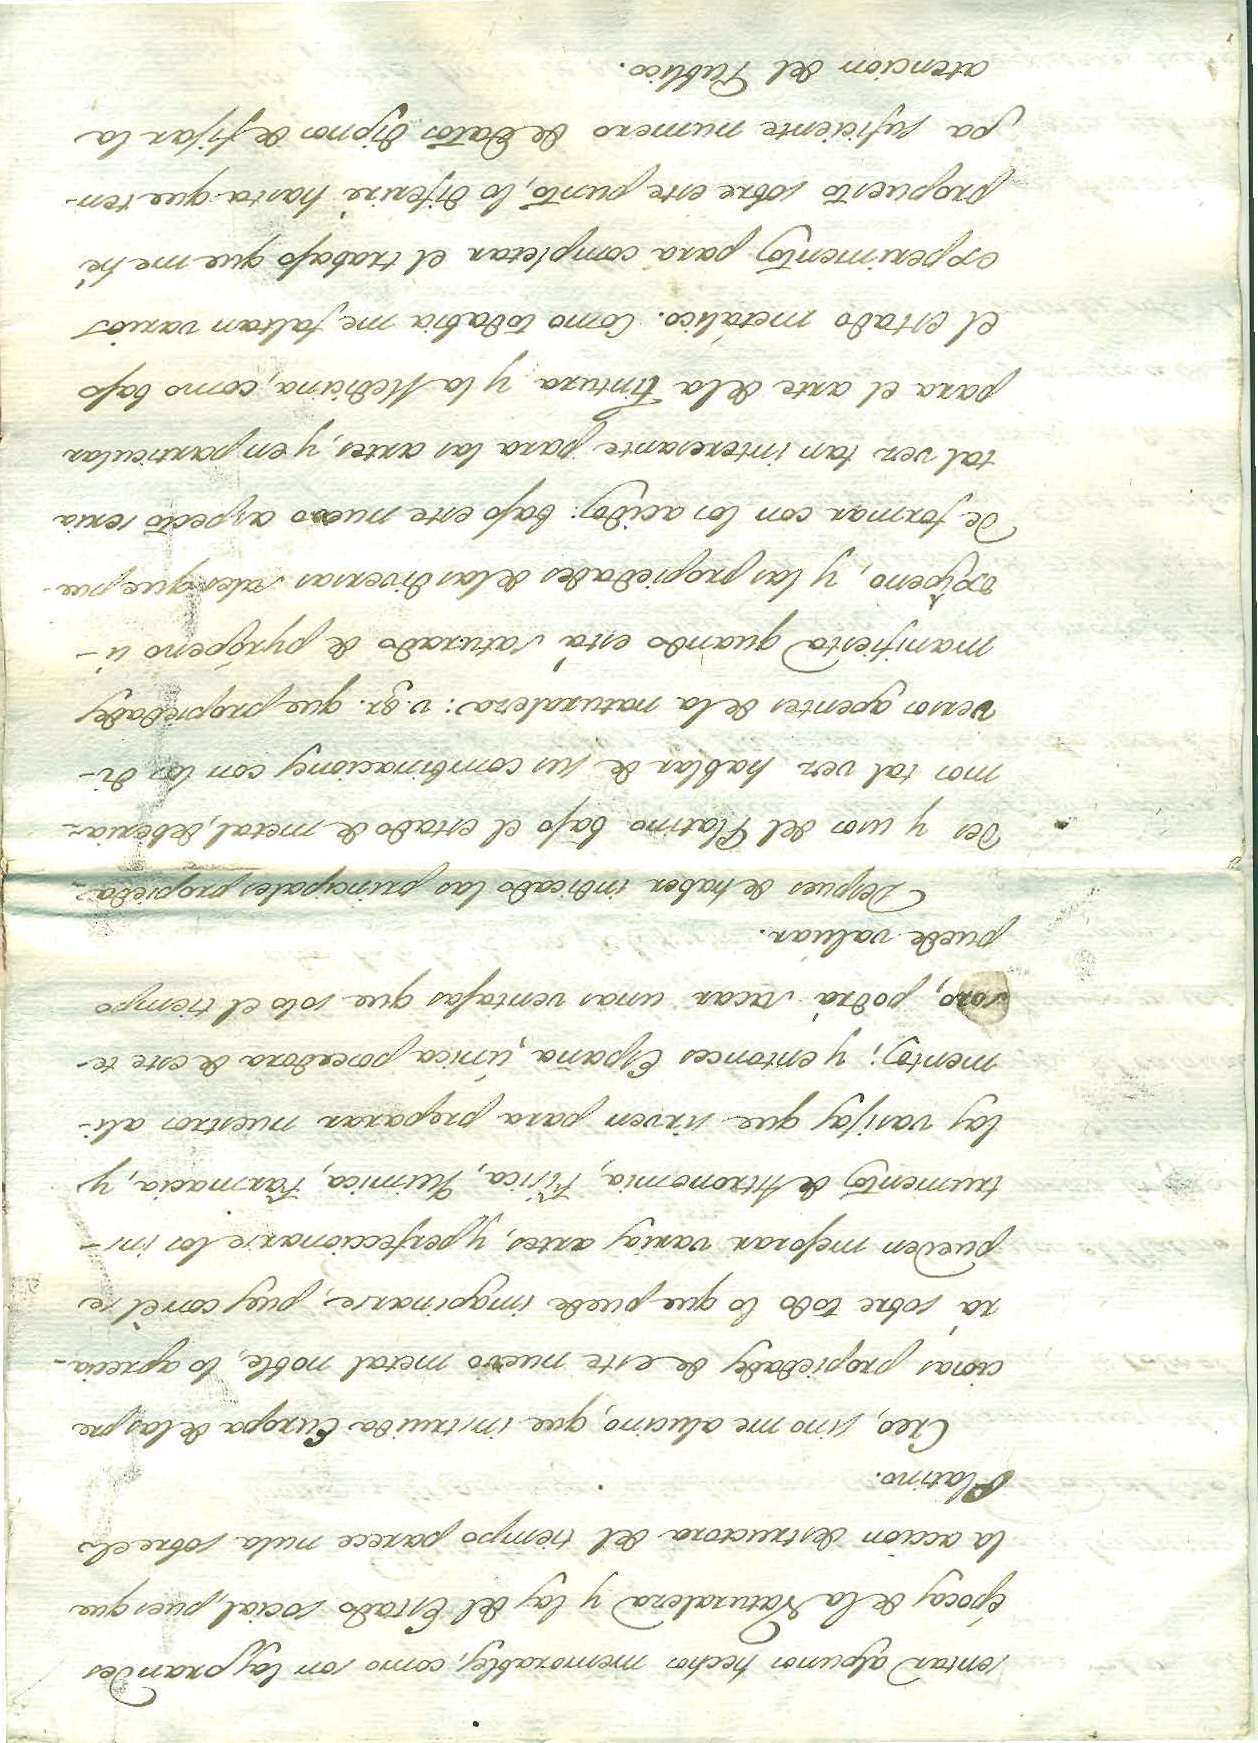 sentar algunos hechos memorables, como son las grandes
épocas de la Naturaleza y las del Estado social, pues que
la accion destructora del tiempo parece nula sobre el
Platino.
Creo, sino me alucino, que instruida Europa de las pre
ciosas propiedades de este nuevo metal noble, lo aprecia-
rá sobre todo lo que puede imaginarse, pues con èl se
pueden mejorar varias artes, y perfeccionarse los ins-
trumentos de Astronomia, Fisica, Quimica, Farmacia, y
las vasijas que sirven para preparar nuestros ali-
mentos; y entonces España, única poseedora de este te-
soro, podrá sacar unas ventajas que solo el tiempo
puede valuar.
Despues de haber indicado las principales propieda-
des y usos del Platino bajo el estado de metal, deberia-
mos tal vez hablar de sus combinaciones con los di-
versos agentes de la naturaleza: v.gr. que propiedades
manifiesta quando está saturado de pyrógeno ú-
oxîgeno, y las propiedades de las diversas sales que pue-
de formar con los acidos: bajo este nuevo aspecto seria
tal vez tan interesante para las artes, y en particular
para el arte de la Tintura y la Medicina, como bajo
el estado metálico. Como todabia me faltan varios
experimentos para completar el trabajo que me hé
propuesto sobre este punto, lo diferiré hasta que ten-
ga suficiente numero de datos dignos de fijar la
atencion del Publico.